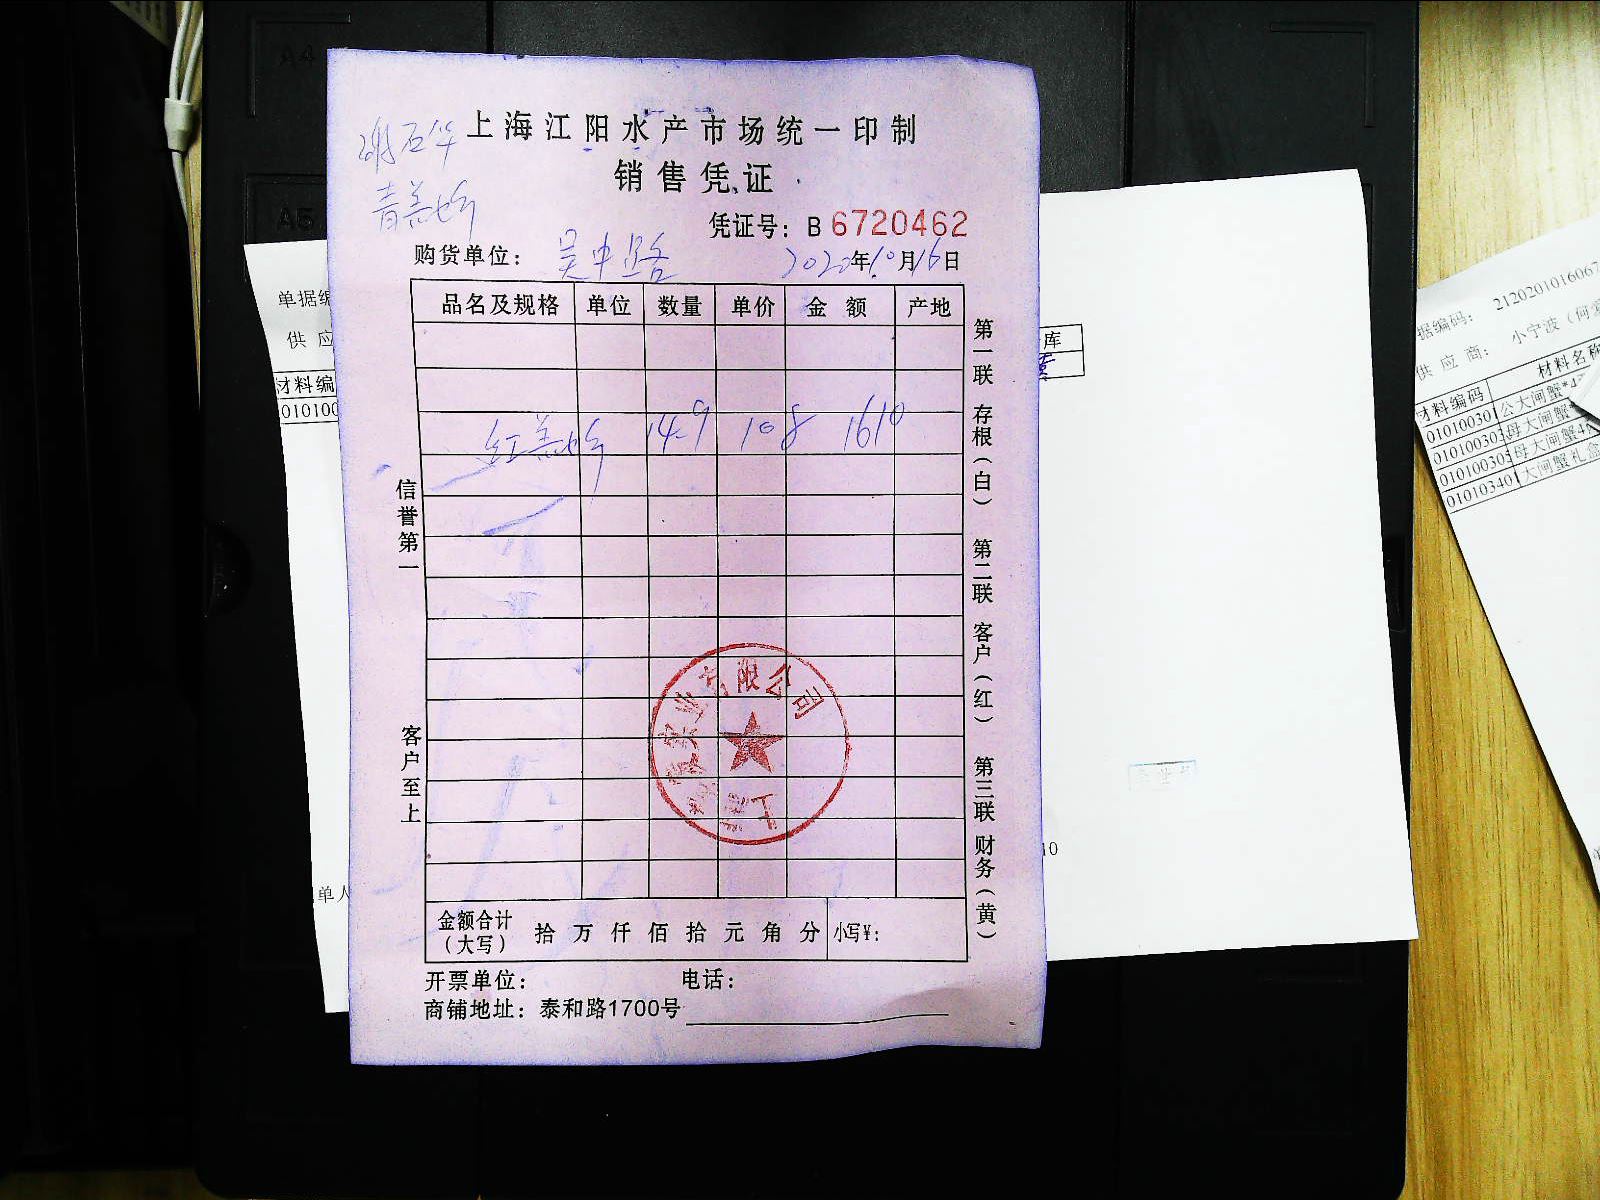 A4
A5
上海江阳水产市场统一印制
销售凭证
青羔蟹
凭证号：B 6720462
购货单位：吴中路 2020年10月16日
品名及规格 单位 数量 单价 金额 产地
14.9 108 1610
信誉第一
客户至上
第一联 存根（白） 第二联 客户（红） 第三联 财务（黄）
实业有限公司
上海
金额合计（大写） 拾 万 仟 佰 拾 元 角 分 小写¥：
开票单位： 电话：
商铺地址：泰和路1700号
单据编
供 应
材料编
010100
库
10
单人
据编码： 2120201016067
供 应 商： 小宁波（何爱
材料编码 材料名称
010100301 公大闸蟹*4
母大闸蟹*
010100305 母大闸蟹4
010103401 大闸蟹礼盒